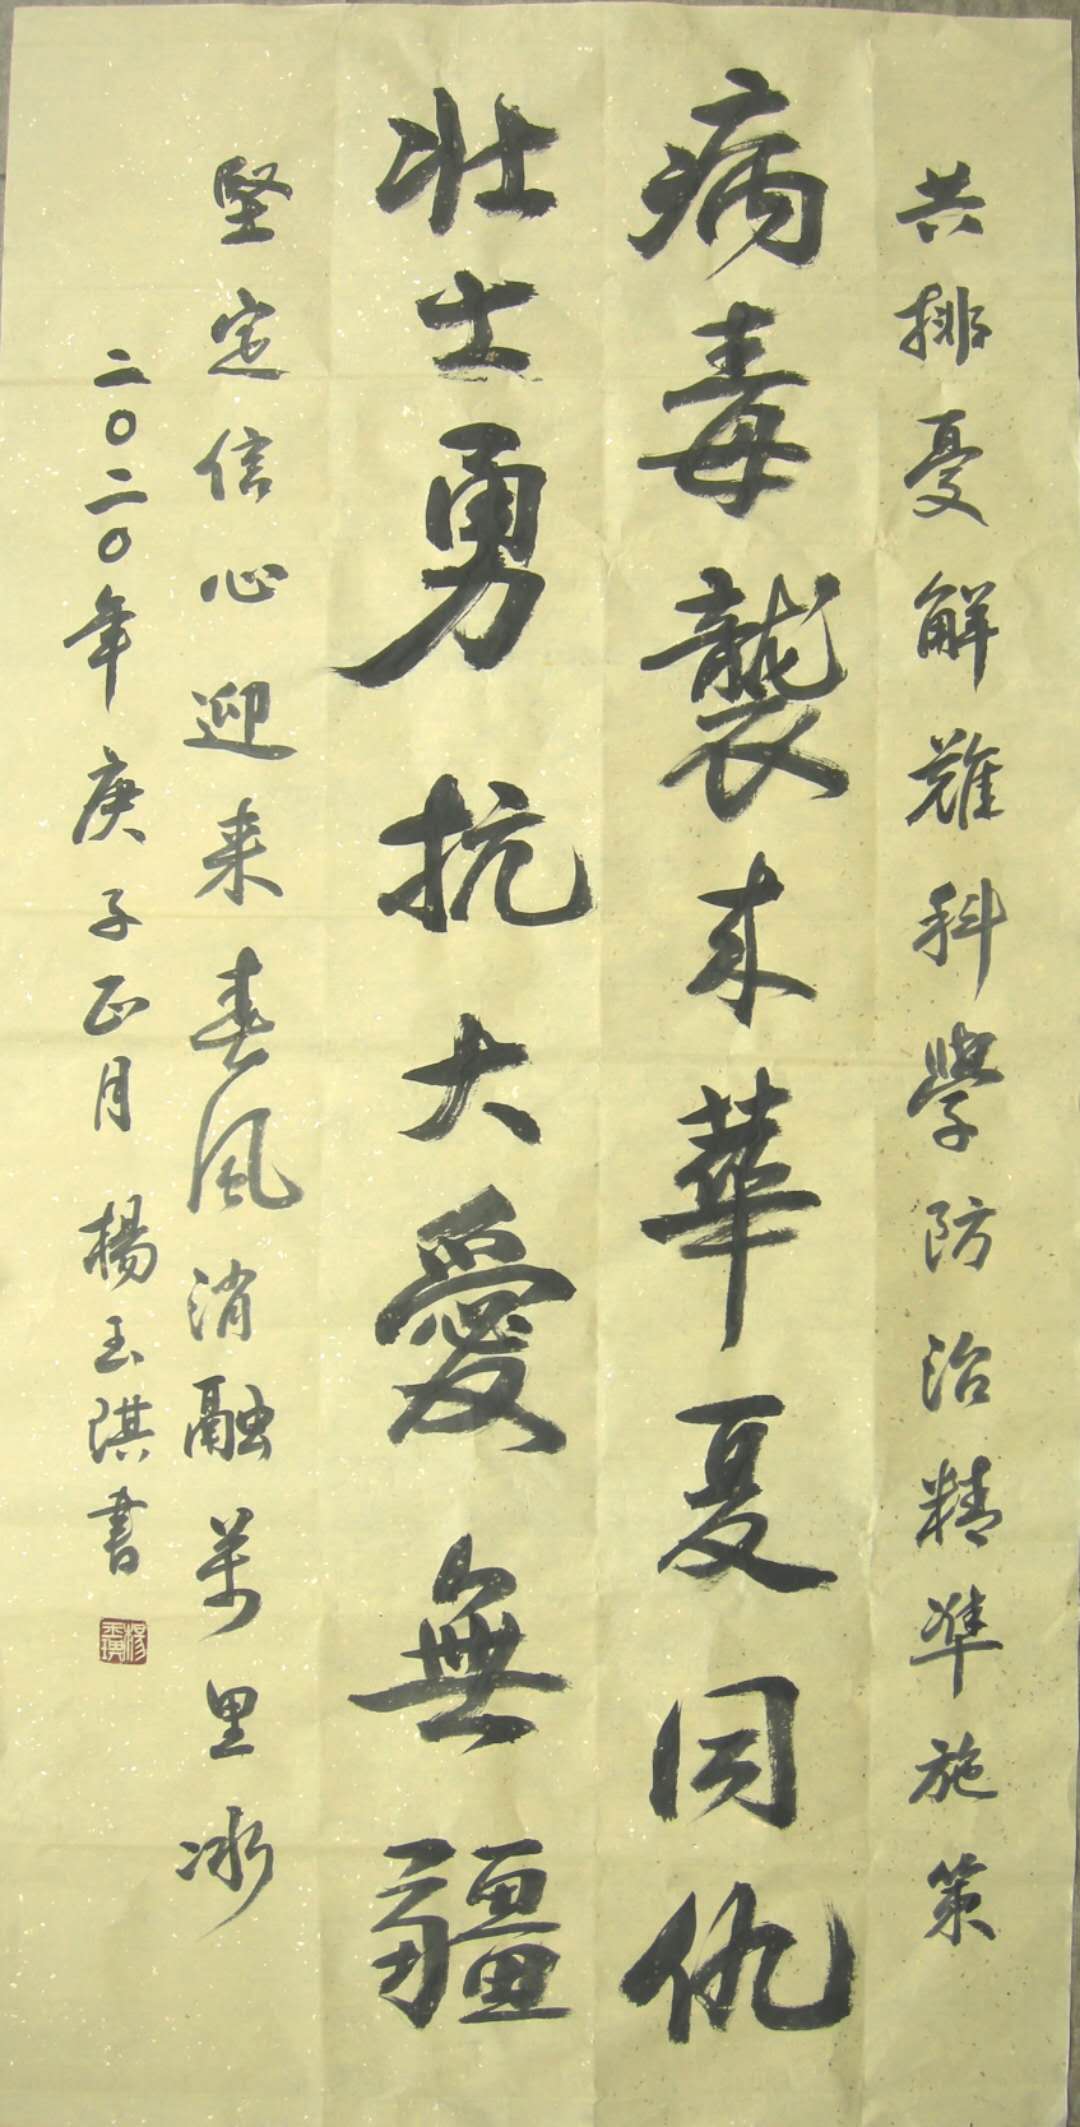 共排憂解難科學防治精準施策
病毒襲来華夏同仇
壯士勇抗大愛無疆
堅定信心迎来春風消融萬里冰
二〇二〇年庚子正月楊玉琪書